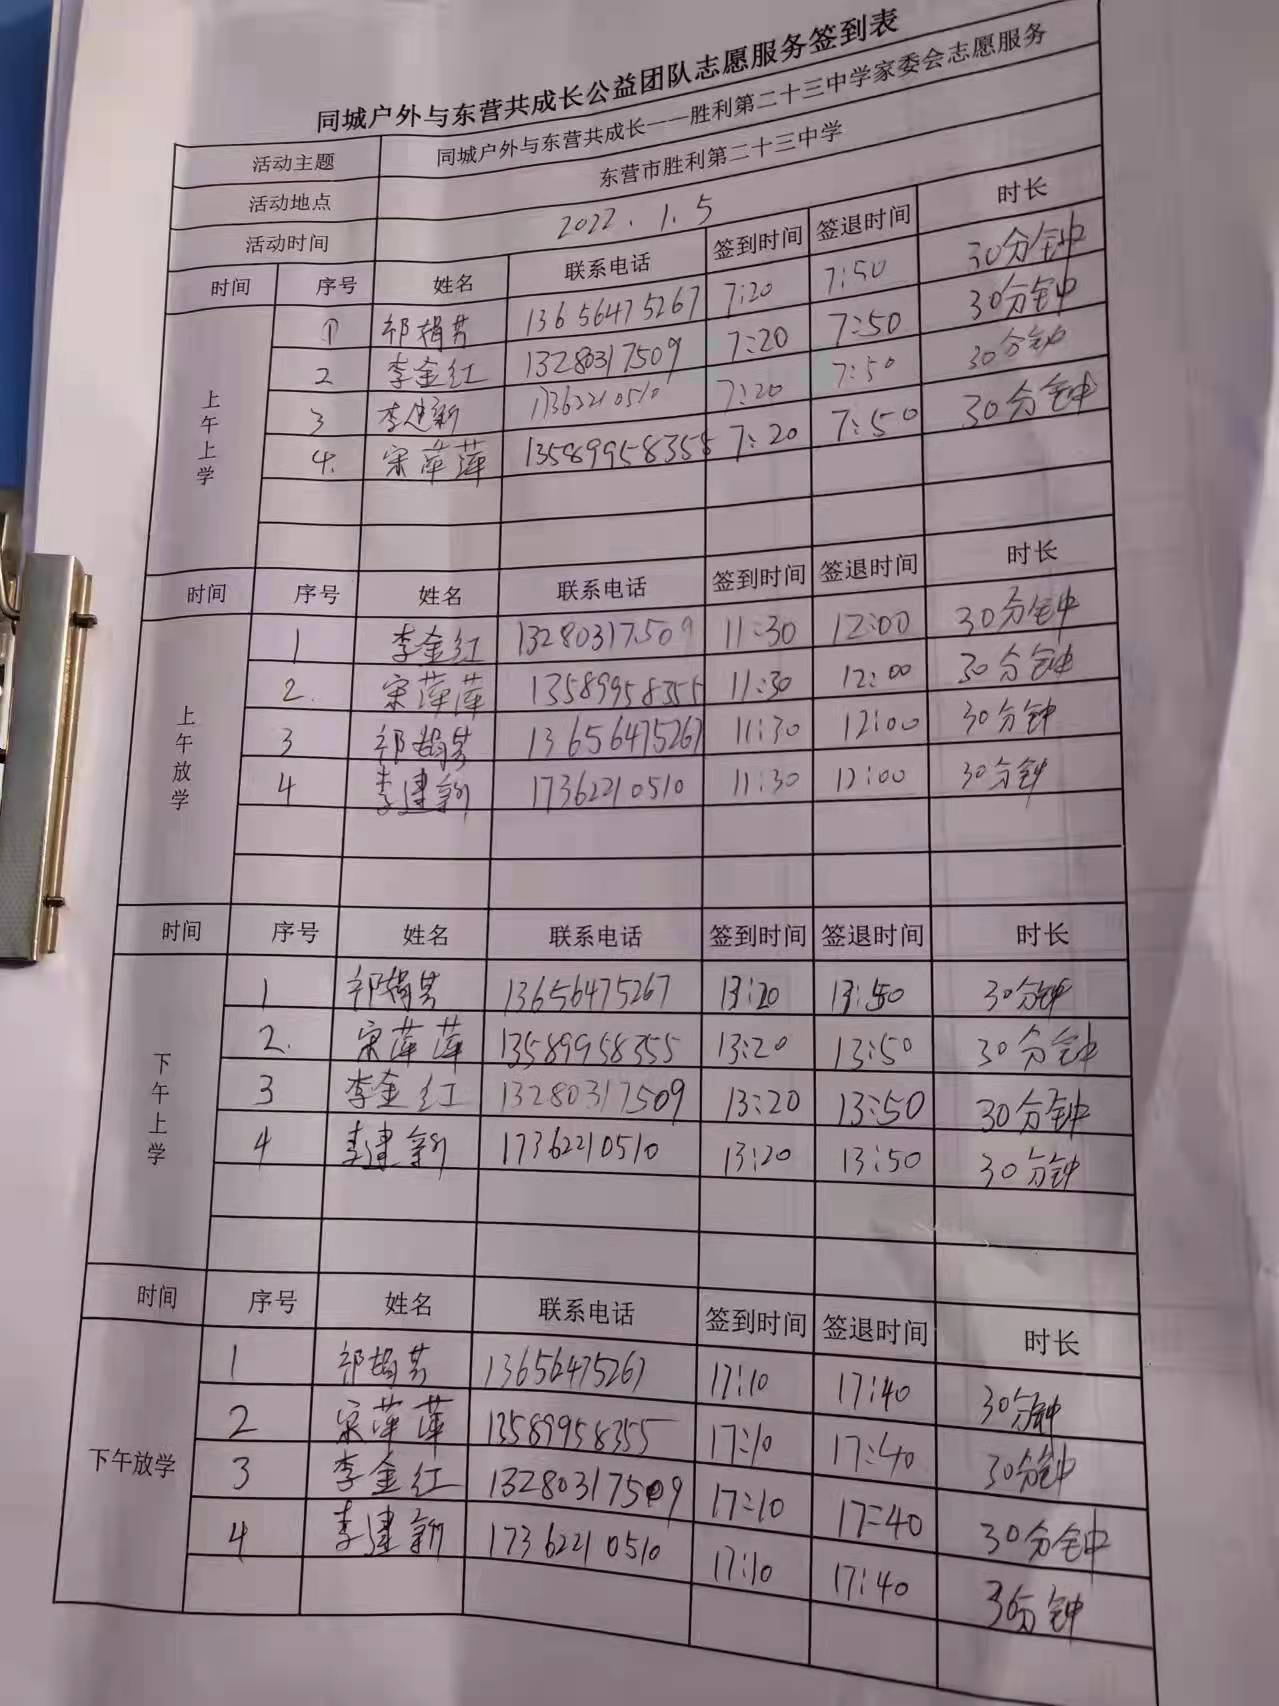 同城户外与东营共成长公益团队志愿服务签到表
活动主题 同城户外与东营共成长——胜利第二十三中学家委会志愿服务
活动地点 东营市胜利第二十三中学
活动时间 2022.1.5
时间 序号 姓名 联系电话 签到时间 签退时间 时长
上午上学
1 祁娟芳 13656475267 7:20 7:50 30分钟
2 李金红 13280317509 7:20 7:50 30分钟
3 李建新 17362210510 7:20 7:50 30分钟
4. 宋萍萍 13589958355 7:20 7:50 30分钟
时间 序号 姓名 联系电话 签到时间 签退时间 时长
上午放学
1 李金红 13280317509 11:30 12:00 30分钟
2. 宋萍萍 13589958355 11:30 12:00 30分钟
3 祁娟芳 13656475267 11:30 12:00 30分钟
4 李建新 17362210510 11:30 12:00 30分钟
时间 序号 姓名 联系电话 签到时间 签退时间 时长
下午上学
1 祁娟芳 13656475267 13:20 13:50 30分钟
2. 宋萍萍 13589958355 13:20 13:50 30分钟
3 李金红 13280317509 13:20 13:50 30分钟
4 李建新 17362210510 13:20 13:50 30分钟
时间 序号 姓名 联系电话 签到时间 签退时间 时长
下午放学
1 祁娟芳 13656475267 17:10 17:40 30分钟
2 宋萍萍 13589958355 17:10 17:40 30分钟
3 李金红 13280317509 17:10 17:40 30分钟
4 李建新 17362210510 17:10 17:40 30分钟